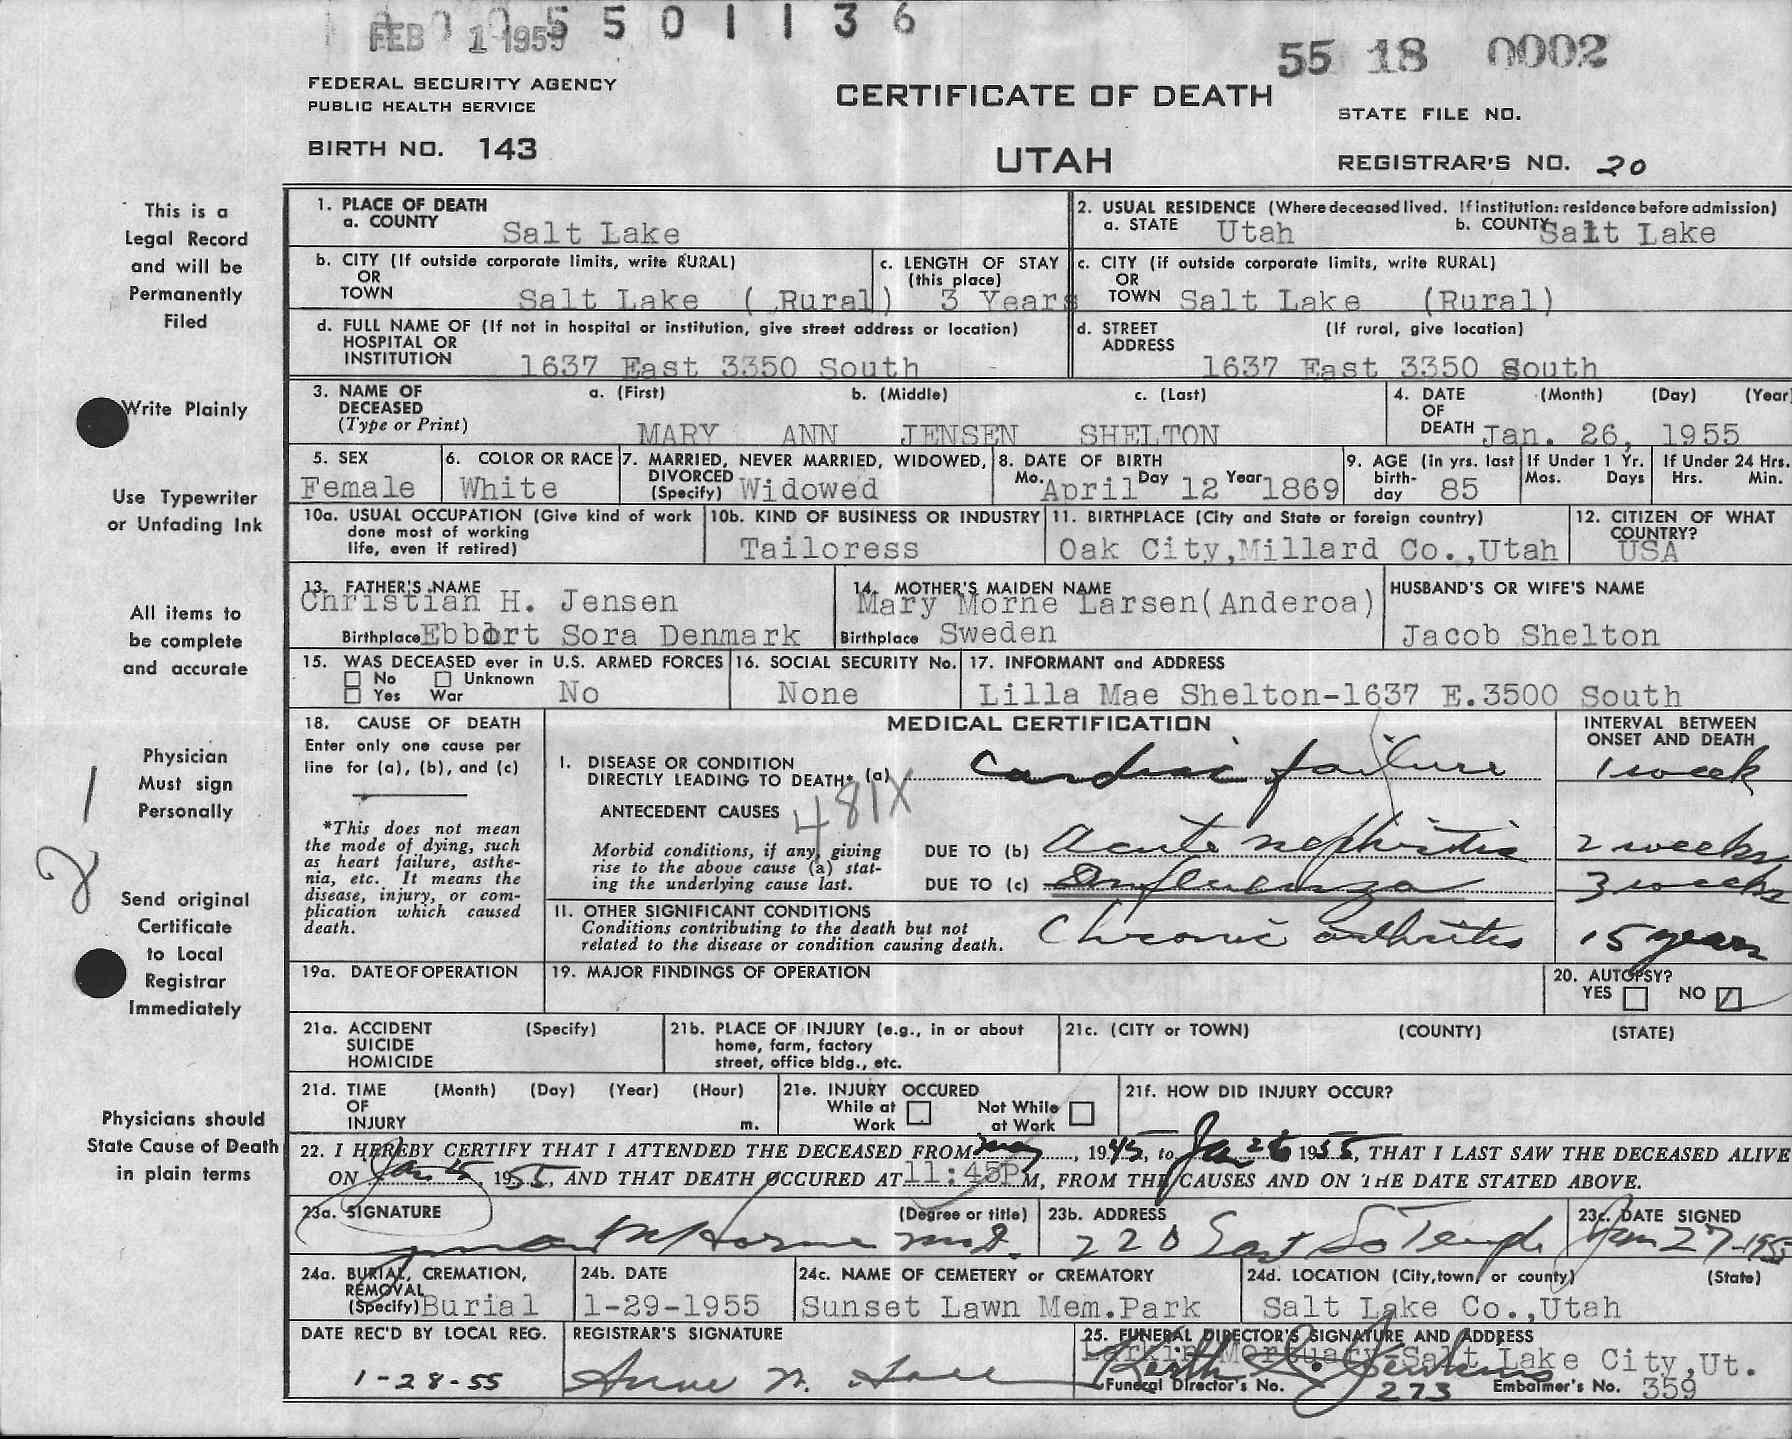 FEB 1 1955 5 5 0 1 1 3 6
55 18 0002
FEDERAL SECURITY AGENCY
PUBLIC HEALTH SERVICE
CERTIFICATE OF DEATH
STATE FILE NO.
BIRTH NO. 143
UTAH
REGISTRAR'S NO. 20
This is a
Legal Record
and will be
Permanently
Filed
Write Plainly
Use Typewriter
or Unfading Ink
All items to
be complete
and accurate
Physician
Must sign
Personally
Send original
Certificate
to Local
Registrar
Immediately
Physicians should
State Cause of Death
in plain terms
1. PLACE OF DEATH
a. COUNTY Salt Lake
2. USUAL RESIDENCE (Where deceased lived. If institution: residence before admission)
a. STATE Utah b. COUNTY Salt Lake
b. CITY (If outside corporate limits, write RURAL)
OR
TOWN Salt Lake ( Rural)
c. LENGTH OF STAY
(this place)
3 Years
c. CITY (if outside corporate limits, write RURAL)
OR
TOWN Salt Lake (Rural)
d. FULL NAME OF (If not in hospital or institution, give street address or location)
HOSPITAL OR
INSTITUTION 1637 East 3350 South
d. STREET (If rural, give location)
ADDRESS
1637 East 3350 South
3. NAME OF a. (First) b. (Middle) c. (Last)
DECEASED
(Type or Print) MARY ANN JENSEN SHELTON
4. DATE (Month) (Day) (Year
OF
DEATH Jan. 26, 1955
5. SEX
Female
6. COLOR OR RACE
White
7. MARRIED, NEVER MARRIED, WIDOWED,
DIVORCED
(Specify) Widowed
8. DATE OF BIRTH
Mo. April Day 12 Year 1869
9. AGE (in yrs. last
birth-
day 85
If Under 1 Yr.
Mos. Days
If Under 24 Hrs.
Hrs. Min.
10a. USUAL OCCUPATION (Give kind of work
done most of working
life, even if retired)
10b. KIND OF BUSINESS OR INDUSTRY
Tailoress
11. BIRTHPLACE (City and State or foreign country)
Oak City,Millard Co.,Utah
12. CITIZEN OF WHAT
COUNTRY?
USA
13. FATHER'S NAME
Christian H. Jensen
Birthplace Ebbort Sora Denmark
14. MOTHER'S MAIDEN NAME
Mary Morne Larsen(Anderoa)
Birthplace Sweden
HUSBAND'S OR WIFE'S NAME
Jacob Shelton
15. WAS DECEASED ever in U.S. ARMED FORCES
No Unknown
Yes War No
16. SOCIAL SECURITY No.
None
17. INFORMANT and ADDRESS
Lilla Mae Shelton-1637 E.3500 South
18. CAUSE OF DEATH
Enter only one cause per
line for (a), (b), and (c)
*This does not mean
the mode of dying, such
as heart failure, asthe-
nia, etc. It means the
disease, injury, or com-
plication which caused
death.
MEDICAL CERTIFICATION
INTERVAL BETWEEN
ONSET AND DEATH
I. DISEASE OR CONDITION
DIRECTLY LEADING TO DEATH* (a) Cardiac failure 1 week
ANTECEDENT CAUSES 481X
Morbid conditions, if any, giving
rise to the above cause (a) stat-
ing the underlying cause last.
DUE TO (b) Acute nephritis 2 weeks
DUE TO (c) Influenza 3 weeks
II. OTHER SIGNIFICANT CONDITIONS
Conditions contributing to the death but not
related to the disease or condition causing death.
Chronic arthritis 15 years
19a. DATE OF OPERATION
19. MAJOR FINDINGS OF OPERATION
20. AUTOPSY?
YES NO
21a. ACCIDENT (Specify)
SUICIDE
HOMICIDE
21b. PLACE OF INJURY (e.g., in or about
home, farm, factory
street, office bldg., etc.
21c. (CITY or TOWN) (COUNTY) (STATE)
21d. TIME (Month) (Day) (Year) (Hour)
OF
INJURY m.
21e. INJURY OCCURED
While at Not While
Work at Work
21f. HOW DID INJURY OCCUR?
22. I HEREBY CERTIFY THAT I ATTENDED THE DECEASED FROM May, 1945, to Jan 26 1955, THAT I LAST SAW THE DECEASED ALIVE
ON Jan 15, 1955, AND THAT DEATH OCCURED AT 11:45P M, FROM THE CAUSES AND ON THE DATE STATED ABOVE.
23a. SIGNATURE (Degree or title)
Horne M.D.
23b. ADDRESS
220 East So Temple
23c. DATE SIGNED
Jan 27-1955
24a. BURIAL, CREMATION,
REMOVAL
(Specify) Burial
24b. DATE
1-29-1955
24c. NAME OF CEMETERY or CREMATORY
Sunset Lawn Mem.Park
24d. LOCATION (City, town, or county) (State)
Salt Lake Co.,Utah
DATE REC'D BY LOCAL REG.
1-28-55
REGISTRAR'S SIGNATURE
Anne M.
25. FUNERAL DIRECTOR'S SIGNATURE AND ADDRESS
Larkin Mortuary-Salt Lake City,Ut.
Funeral Director's No. 273 Embalmer's No. 359